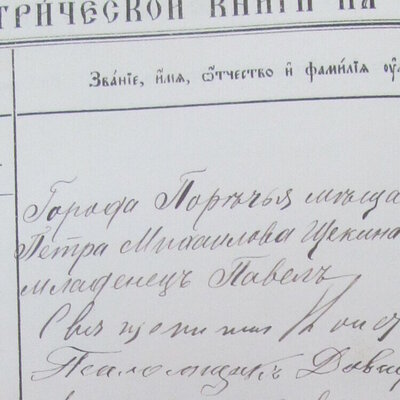 ТРИЧЕСКОЙ КНИГИ НА
Зва́нїе, и҆́мѧ, ѻ҆́тчество и҆ фами́лїѧ оу҆
Города Порѣчья мѣща
Петра Михаилова Щекина
младенецъ Павелъ
Псаломщикъ Дави